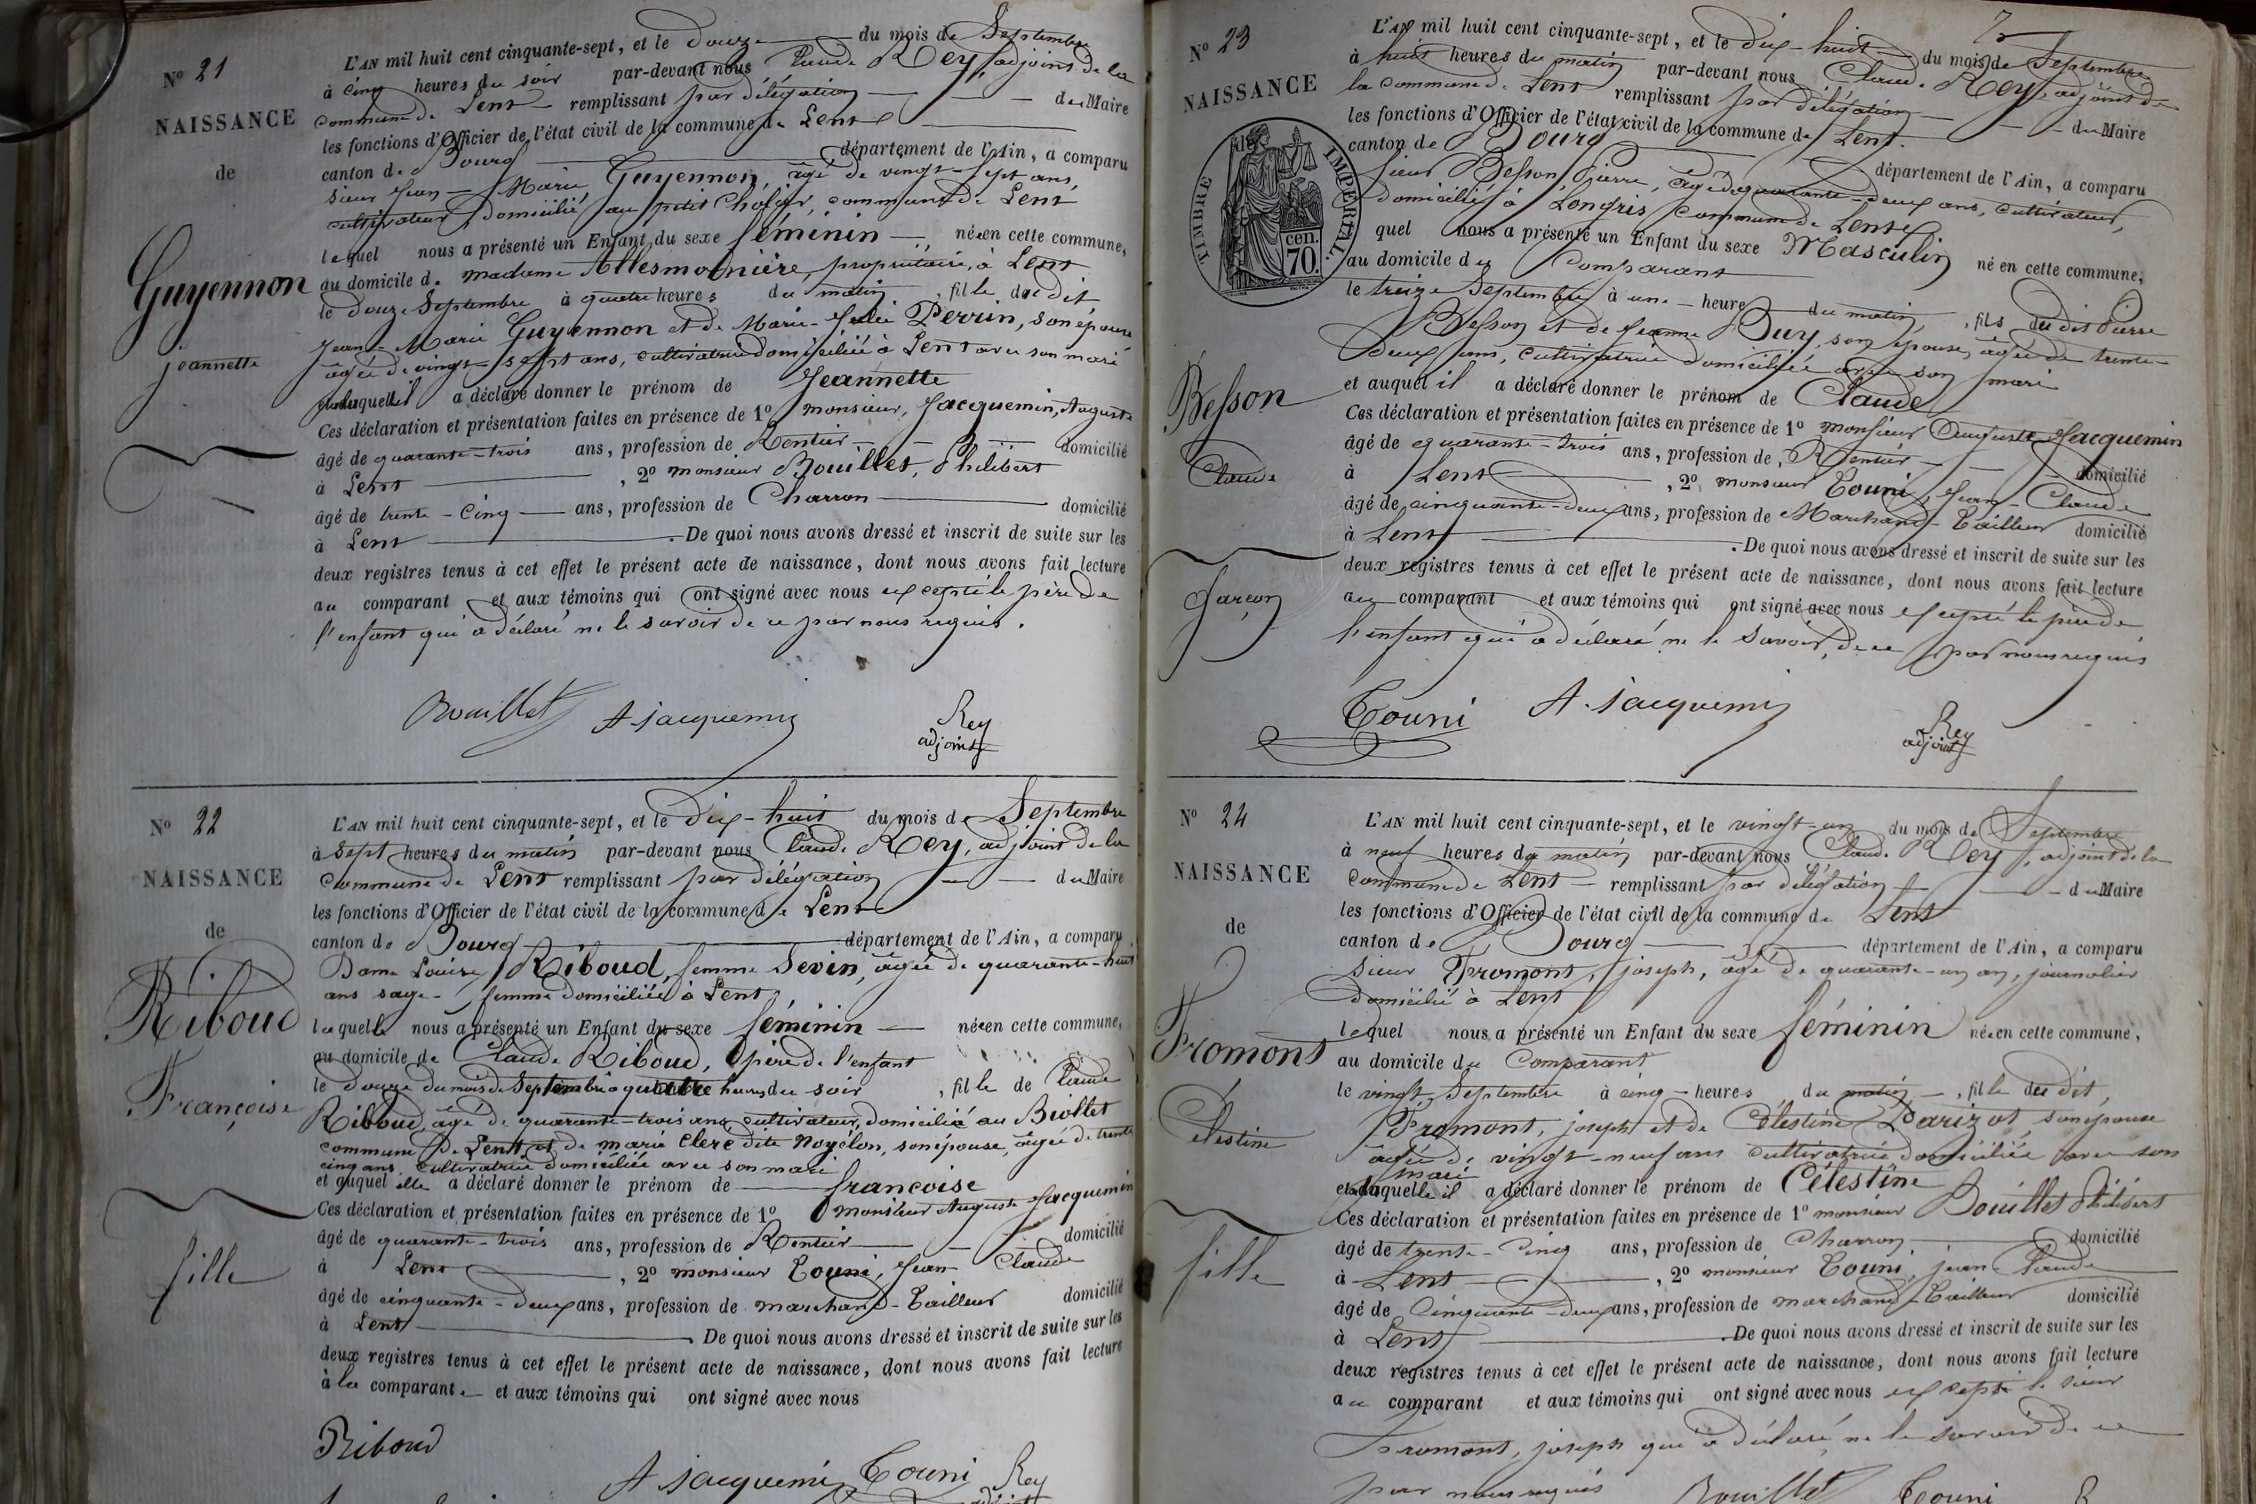 Nº 21
NAISSANCE
de
Guyennon
jeannette
L'AN mil huit cent cinquante-sept, et le douze du mois de Septembre
à cinq heures du soir par-devant nous Claude Rey, adjoint de la
commune de Lent remplissant par délégation du Maire
les fonctions d'Officier de l'état civil de la commune de Lent
canton de Bourg département de l'Ain, a comparu
sieur Jean-Marie Guyennon, âgé de vingt-sept ans,
cultivateur domicilié au petit Cholier, commune de Lent
lequel nous a présenté un Enfant du sexe féminin née en cette commune,
au domicile de madame Allesmonière, propriétaire, à Lent
le douze Septembre à quatre heures du matin, fille du dit
Jean-Marie Guyennon et de Marie-Julie Perrin, son épouse
âgée de vingt-sept ans, cultivatrice domiciliée à Lent avec son mari
et à laquelle il a déclaré donner le prénom de Jeannette
Ces déclaration et présentation faites en présence de 1º monsieur, Jacquemin, Auguste
âgé de quarante-trois ans, profession de Rentier domicilié
à Lent, 2º monsieur Bouillet, Philibert
âgé de trente-cinq ans, profession de Charron domicilié
à Lent. De quoi nous avons dressé et inscrit de suite sur les
deux registres tenus à cet effet le présent acte de naissance, dont nous avons fait lecture
au comparant et aux témoins qui ont signé avec nous excepté le père de
l'enfant qui a déclaré ne le savoir de ce par nous requis.
Bouillet A. Jacquemin Rey
adjoint
Nº 22
NAISSANCE
de
Riboud
Françoise
fille
L'AN mil huit cent cinquante-sept, et le dix-huit du mois de Septembre
à sept heures du matin par-devant nous Claude Rey, adjoint de la
commune de Lent remplissant par délégation du Maire
les fonctions d'Officier de l'état civil de la commune de Lent
canton de Bourg département de l'Ain, a comparu
Dame Louise Riboud, femme Sevin, âgée de quarante-huit
ans sage-femme domiciliée à Lent
laquelle nous a présenté un Enfant du sexe féminin née en cette commune,
au domicile de Claude Riboud, père de l'enfant
le douze du mois de Septembre à quatre heures du soir, fille de Claude
Riboud, âgé de quarante-trois ans, cultivateur, domicilié au Biollet
commune de Lent, et de marie Clerc dite Noyélon, son épouse, âgée de trente
cinq ans, cultivatrice domiciliée avec son mari
et auquel elle a déclaré donner le prénom de françoise
Ces déclaration et présentation faites en présence de 1º monsieur Auguste Jacquemin
âgé de quarante-trois ans, profession de Rentier domicilié
à Lent, 2º monsieur Touni, Jean Claude
âgé de cinquante-deux ans, profession de marchand-Tailleur domicilié
à Lent. De quoi nous avons dressé et inscrit de suite sur les
deux registres tenus à cet effet le présent acte de naissance, dont nous avons fait lecture
à la comparante et aux témoins qui ont signé avec nous
Riboud
A Jacquemin Touni Rey
Nº 23
NAISSANCE
de
TIMBRE IMPÉRIAL
70 cen.
Besson
Claude
Garçon
L'AN mil huit cent cinquante-sept, et le dix-huit du mois de Septembre
à huit heures du matin par-devant nous Claude Rey, adjoint de
la commune de Lent remplissant par délégation du Maire
les fonctions d'Officier de l'état civil de la commune de Lent.
canton de Bourg département de l'Ain, a comparu
sieur Besson, Pierre, âgé de quarante-deux ans, cultivateur,
domicilié à Longris, commune de Lent
quel nous a présenté un Enfant du sexe Masculin né en cette commune,
au domicile du Comparant
le treize Septembre à une heure du matin, fils du dit Pierre
Besson et de Jeanne Buy, son épouse, âgée de trente-
deux ans, cultivatrice domiciliée avec son mari
et auquel il a déclaré donner le prénom de Claude
Ces déclaration et présentation faites en présence de 1º monsieur Auguste Jacquemin
âgé de quarante-trois ans, profession de Rentier domicilié
à Lent, 2º monsieur Touni, Jean-Claude
âgé de cinquante-deux ans, profession de Marchand-Tailleur domicilié
à Lent. De quoi nous avons dressé et inscrit de suite sur les
deux registres tenus à cet effet le présent acte de naissance, dont nous avons fait lecture
au comparant et aux témoins qui ont signé avec nous excepté le père de
l'enfant qui a déclaré ne le savoir, de ce par nous requis
Touni A. Jacquemin Rey
adjoint
Nº 24
NAISSANCE
de
Fromont
Célestine
fille
L'AN mil huit cent cinquante-sept, et le vingt-un du mois de Septembre
à neuf heures du matin par-devant nous Claude Rey, adjoint de la
commune de Lent remplissant par délégation du Maire
les fonctions d'Officier de l'état civil de la commune de Lent
canton de Bourg département de l'Ain, a comparu
sieur Fromont, joseph, âgé de quarante-un an, journalier
domicilié à Lent
lequel nous a présenté un Enfant du sexe féminin née en cette commune,
au domicile du Comparant
le vingt Septembre à cinq heures du matin, fille du dit,
Fromont, joseph et de Célestine Parizot, son épouse
âgée de vingt-neuf ans cultivatrice domiciliée avec son
mari
et à laquelle il a déclaré donner le prénom de Célestine
Ces déclaration et présentation faites en présence de 1º monsieur Bouillet Philibert
âgé de trente-cinq ans, profession de Charron domicilié
à Lent, 2º monsieur Touni, jean Claude
âgé de Cinquante-deux ans, profession de marchand-Tailleur domicilié
à Lent. De quoi nous avons dressé et inscrit de suite sur les
deux registres tenus à cet effet le présent acte de naissance, dont nous avons fait lecture
au comparant et aux témoins qui ont signé avec nous excepté le sieur
Fromont, joseph qui a déclaré ne le savoir de ce
par nous requis Bouillet Touni